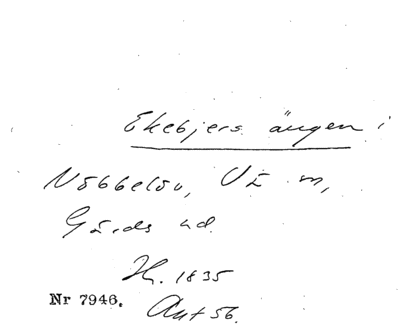 Ekebjers ängen i
Nöbbelöv, Vä sn,
Gärds hd
H. 1835
Nr 7946. Ant 56.